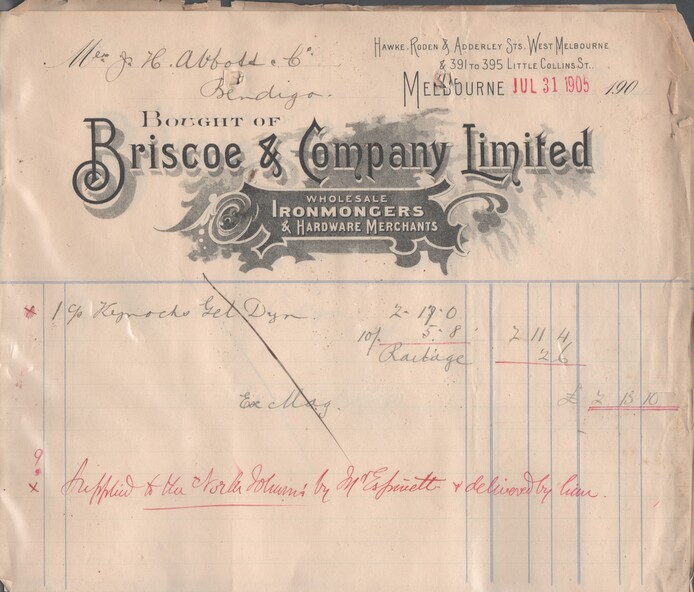 Messrs J. H. Abbott & Co
Bendigo.
HAWKE, RODEN & ADDERLEY STS. WEST MELBOURNE
& 391 TO 395 LITTLE COLLINS ST.
MELBOURNE JUL 31 1905 190
BOUGHT OF
Briscoe & Company Limited
WHOLESALE
IRONMONGERS
& HARDWARE MERCHANTS
x 1 c/s Kynochs Gel Dyn. 2-17-0
10% 5-8 2 11 4
Cartage 2 6
Ex Mag. £ 2 13 10
9
x Supplied to the North Johnson's by Mr Espinett & delivered by him.